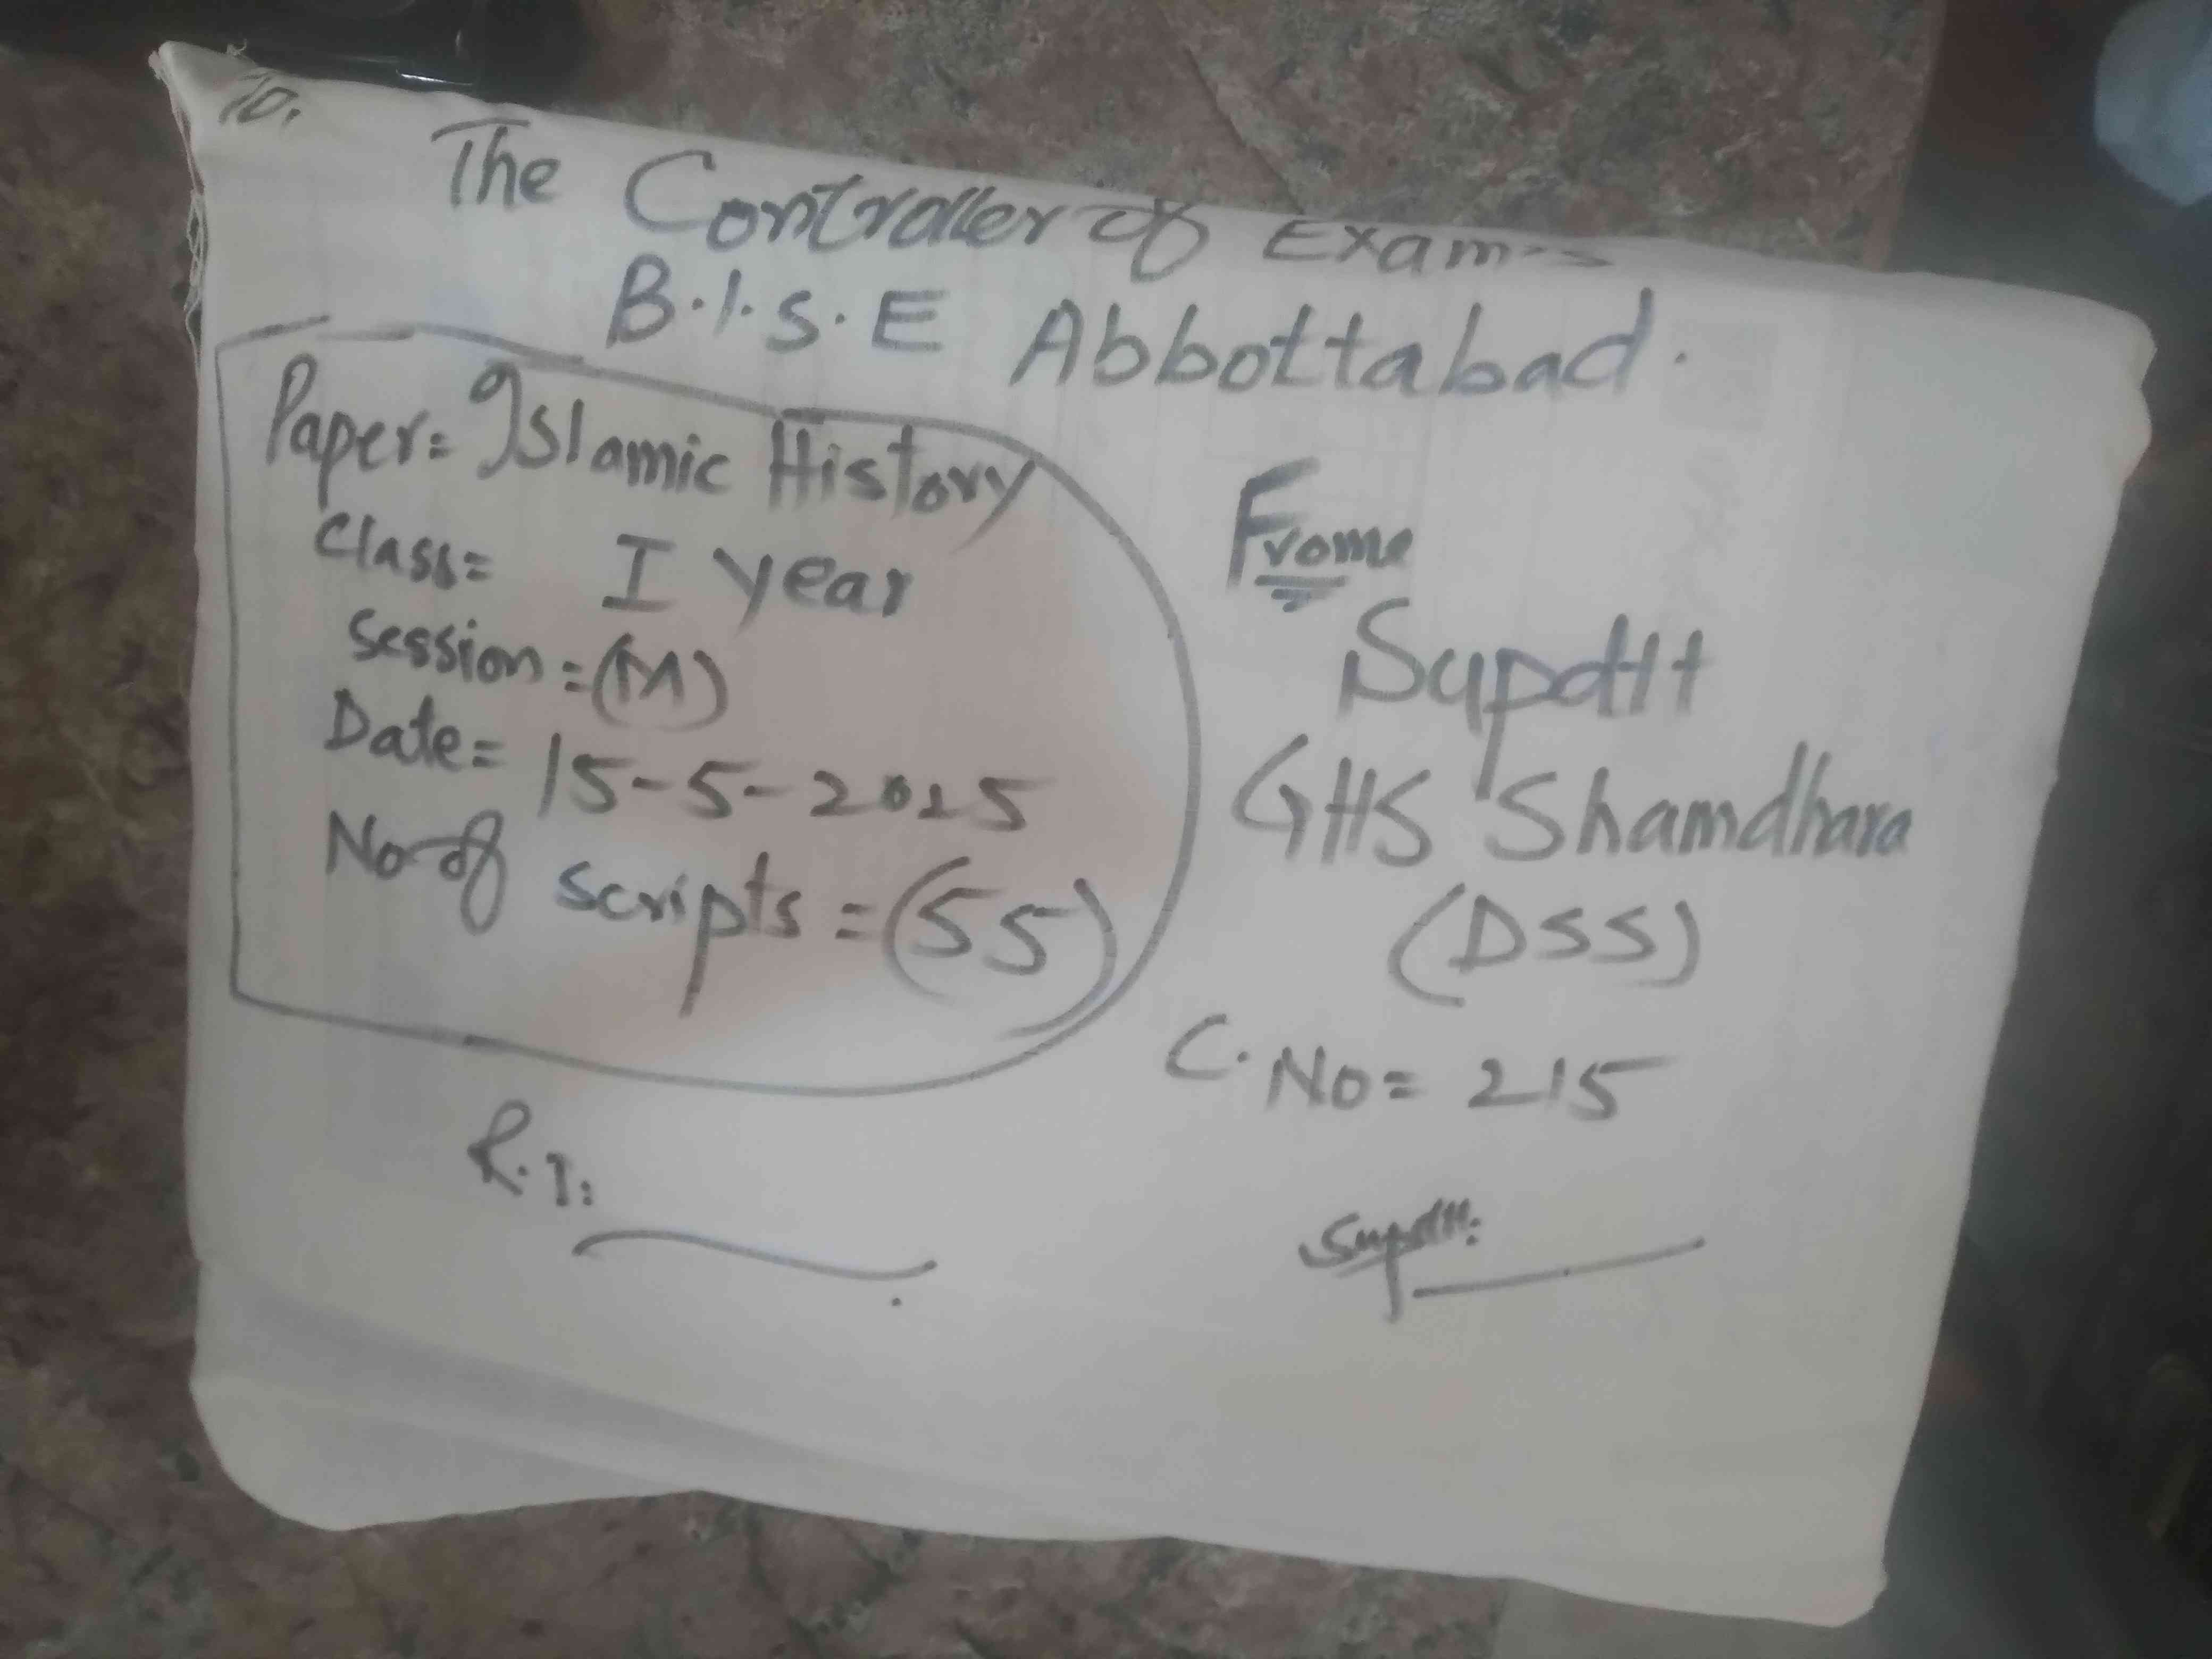 To,
The Controller of Exams
B.I.S.E Abbottabad.
Paper = Islamic History
Class = I year
Session = (M)
Date = 15-5-2025
No of scripts = (55)
R.I:
From
Supdtt
GHS Shamdhara
(DSS)
C.No = 215
Supdtt: